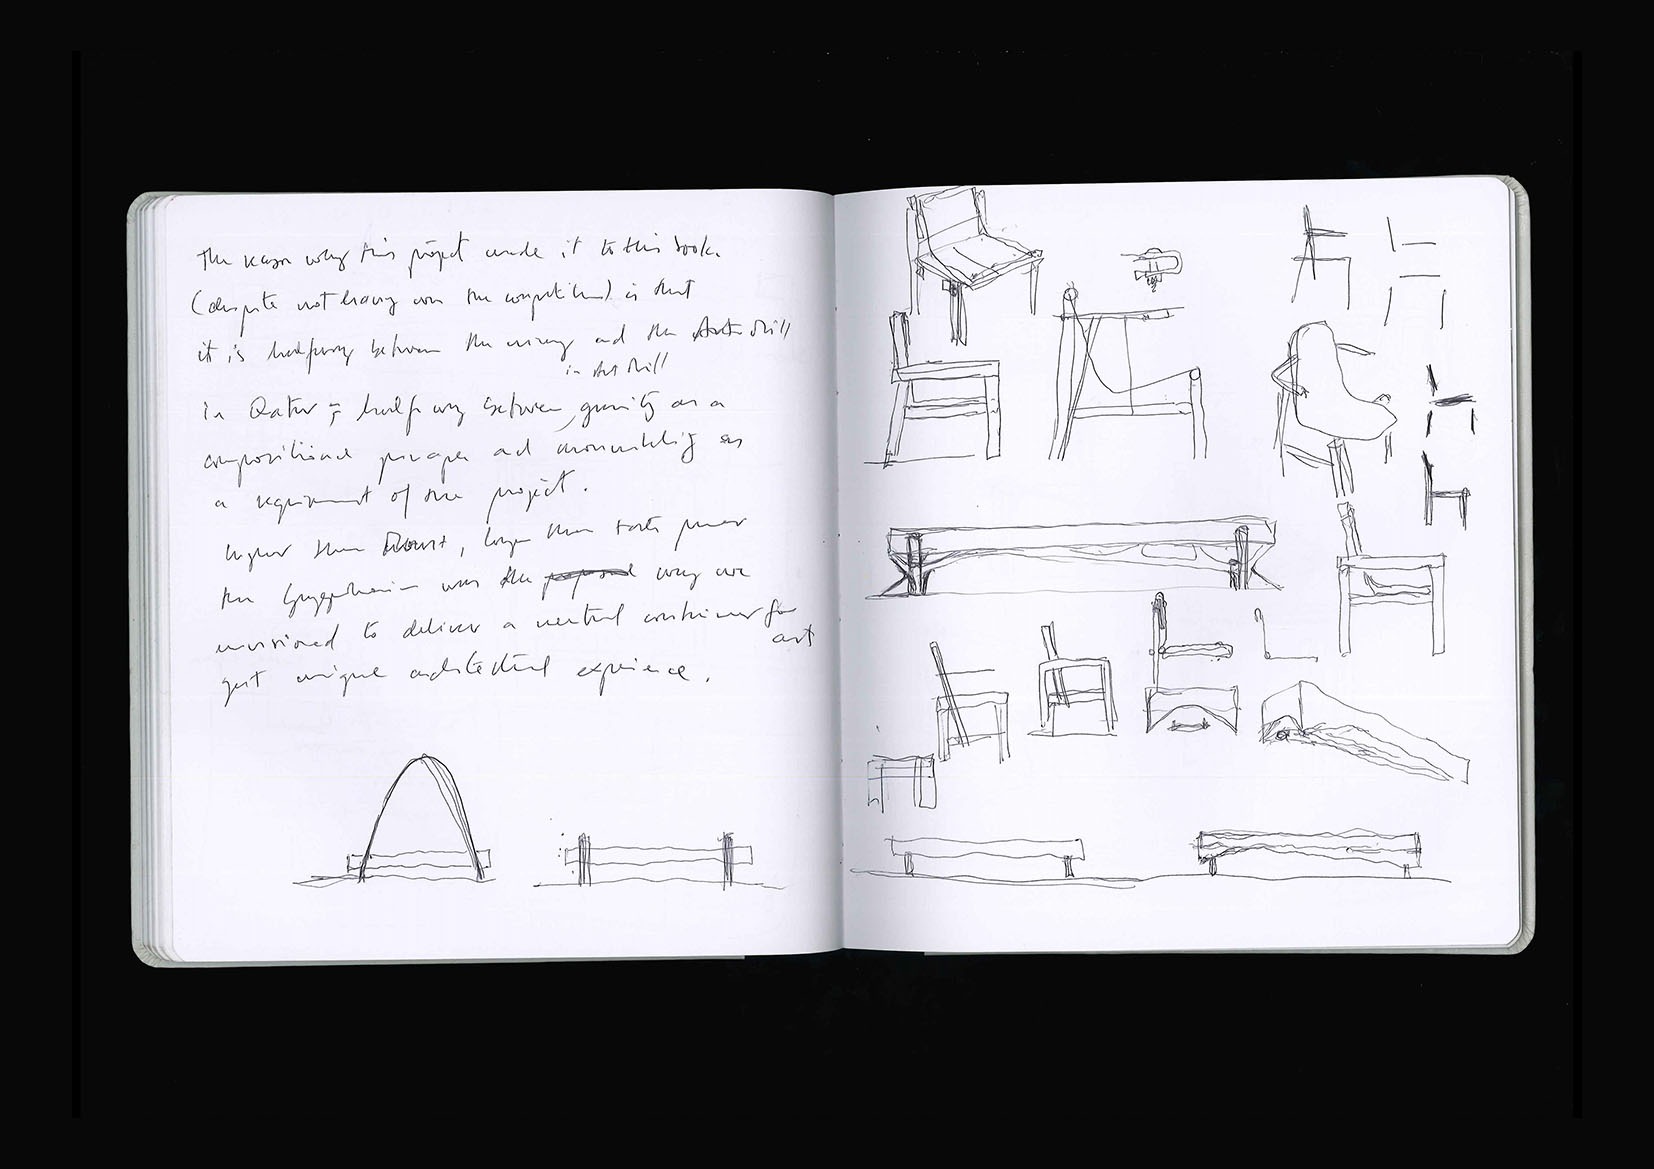 The reason why this project made it to this book.
(despite not having won the competition) is that
it is halfway between the and the Art Mill
in Art Mill
in Qatar ; halfway between gravity as a
compositional and monumentality as
a requirement of the project.
higher than , larger than Tate
the Guggenheim was the way we
envisioned to deliver a neutral container for
art
yet unique architectural experience.